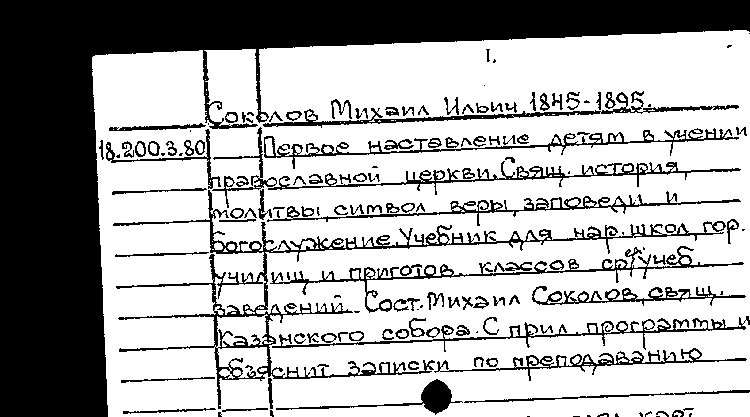 I.
Соколов Михаил Ильич, 1845-1895.
18.200.3.80 Первое наставление детям в учении
православной церкви. Свящ. история,
молитвы, символ веры, заповеди и
богослужение. Учебник для нар. школ, гор.
училищ и приготов. классов сред. учеб.
заведений. Сост. Михаил Соколов, свящ.
Казанского собора. С прил. программы и
объяснит. записки по преподаванию